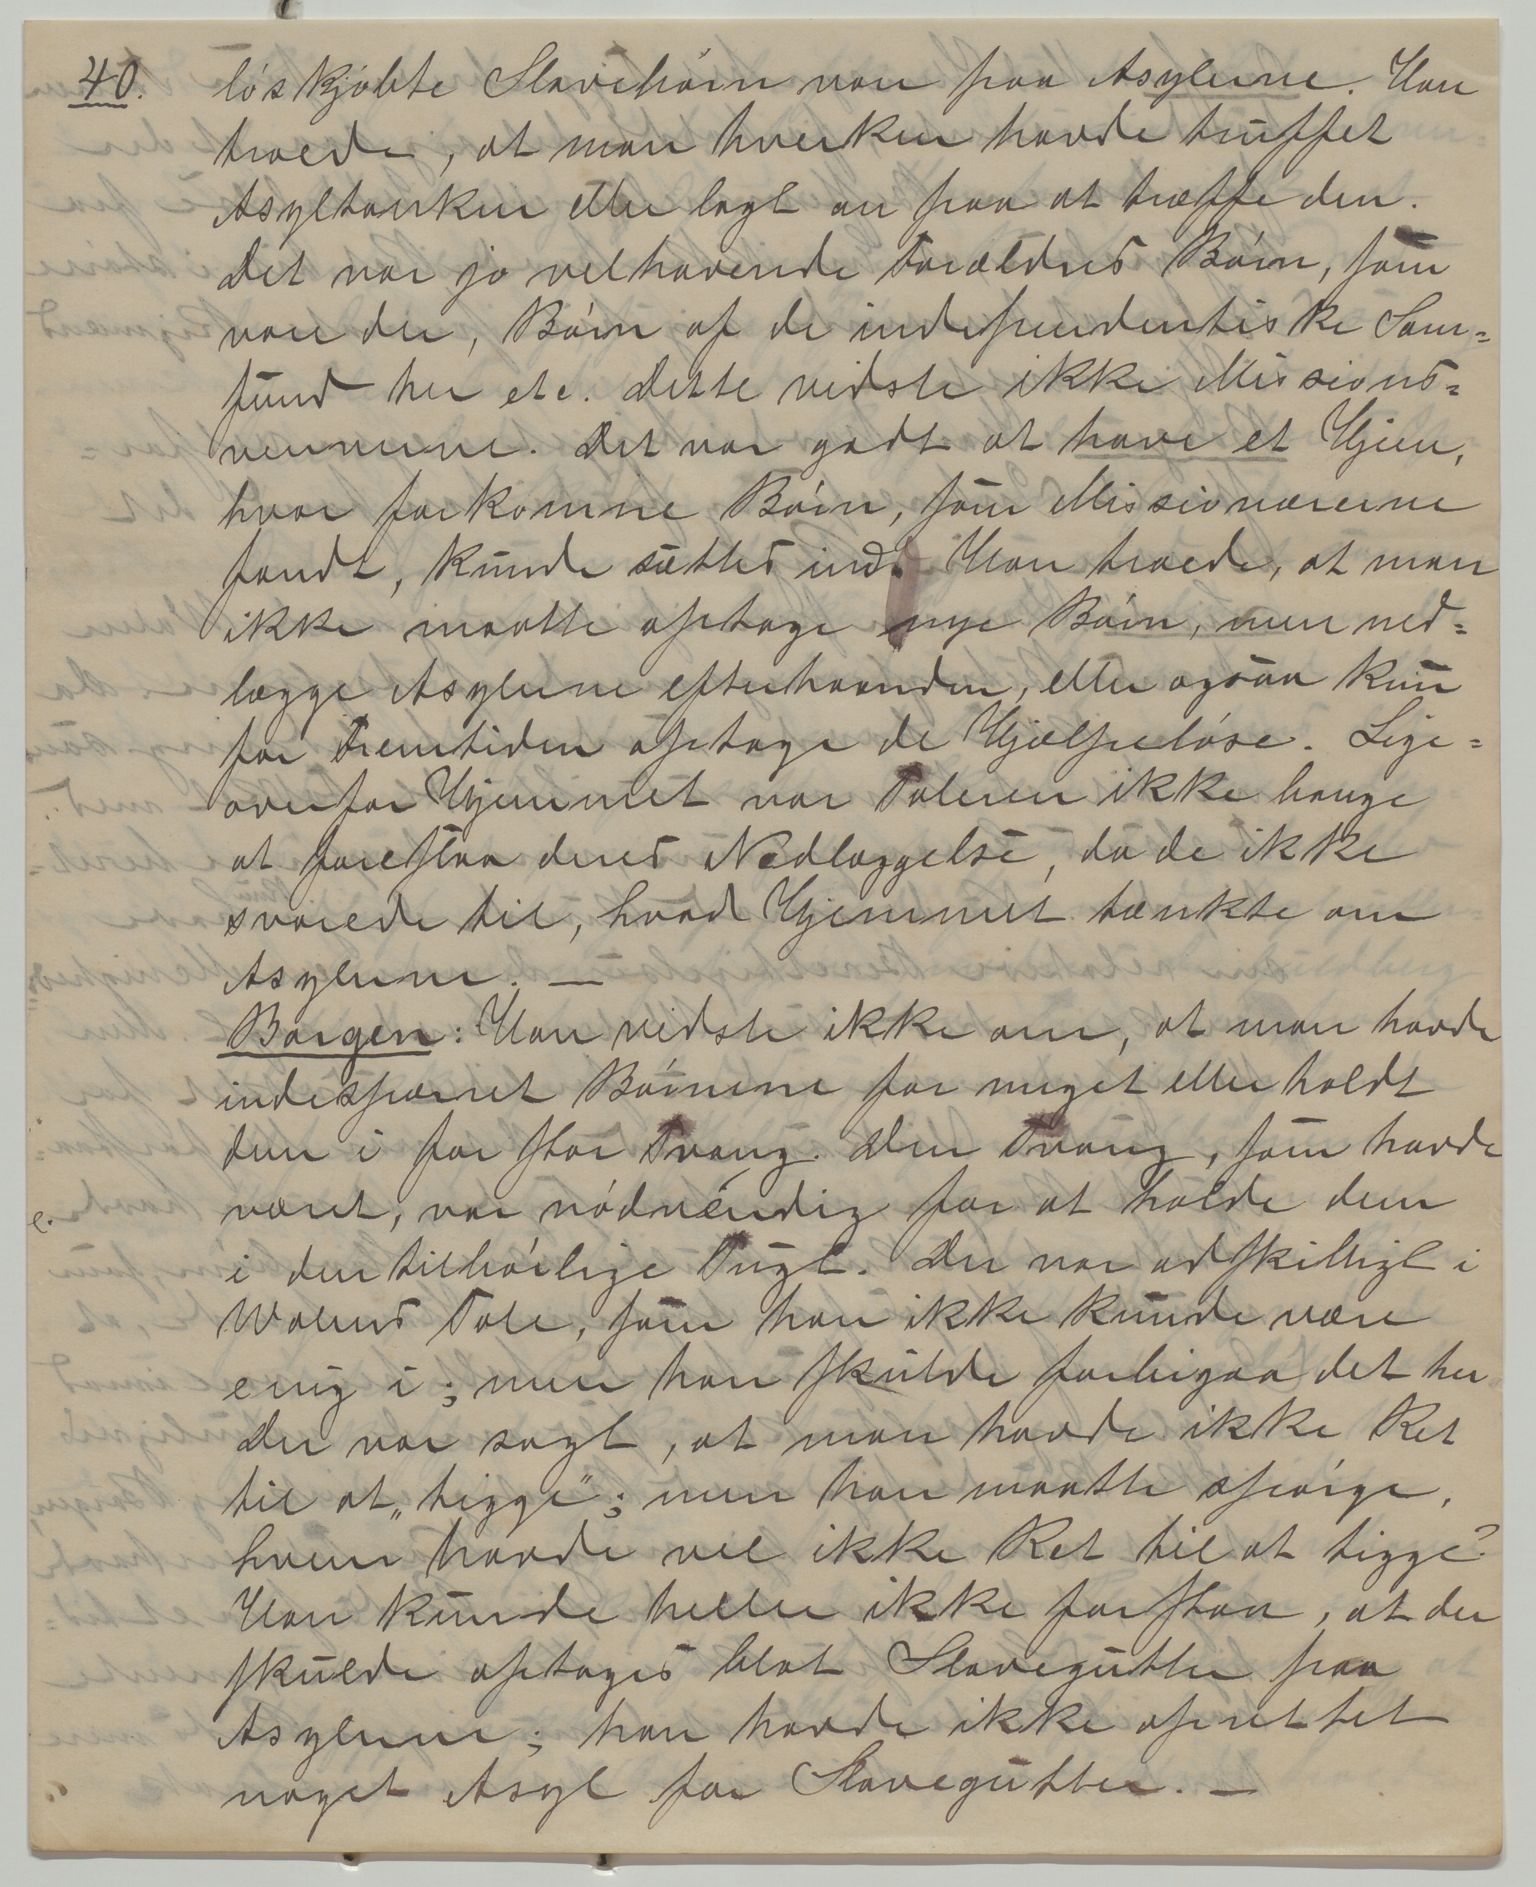 40. løskjøbte Slavebørn var paa Asylerne. Han
troede, at man hverken havde truffet
Asyltanken eller lagt an paa at træffe den.
Det var jo velhavende Forældres Børn, som
vare der, Børn af de independentiske Sam-
fund her etc. Dette vidste ikke Missions-
vennerne. Det var godt at have et Hjem,
hvor forkomne Børn, som Missionærerne
fandt, kunde sættes ind. Han troede, at man
ikke maatte optage nye Børn, men ned-
lægge Asylerne efterhaanden, eller ogsaa kun
for Fremtiden optage de Hjælpeløse. Lige-
overfor Hjemmet var Taleren ikke bange
at foreslaa deres Nedlæggelse, da de ikke
svarede til, hvad Hjemmet tænkte om
Asylerne. —
Borgen: Han vidste ikke om, at man havde
indespærret Børnene for meget eller holdt
dem i for stor Tvang. Den Tvang, som havde
været, var nødvendig for at holde dem
i den tilbørlige Tugt. Der var adskilligt i
Walens Tale, som han ikke kunde være
enig i; men han skulde forbigaa det her.
Der var sagt, at man havde ikke Ret
til at „tigge"; men han maatte spørge,
hvem havde vel ikke Ret til at tigge?
Han kunde heller ikke forstaa, at der
skulde optages blot Slavegutter paa
Asylerne; han havde ikke oprettet
noget Asyl for Slavegutter. —